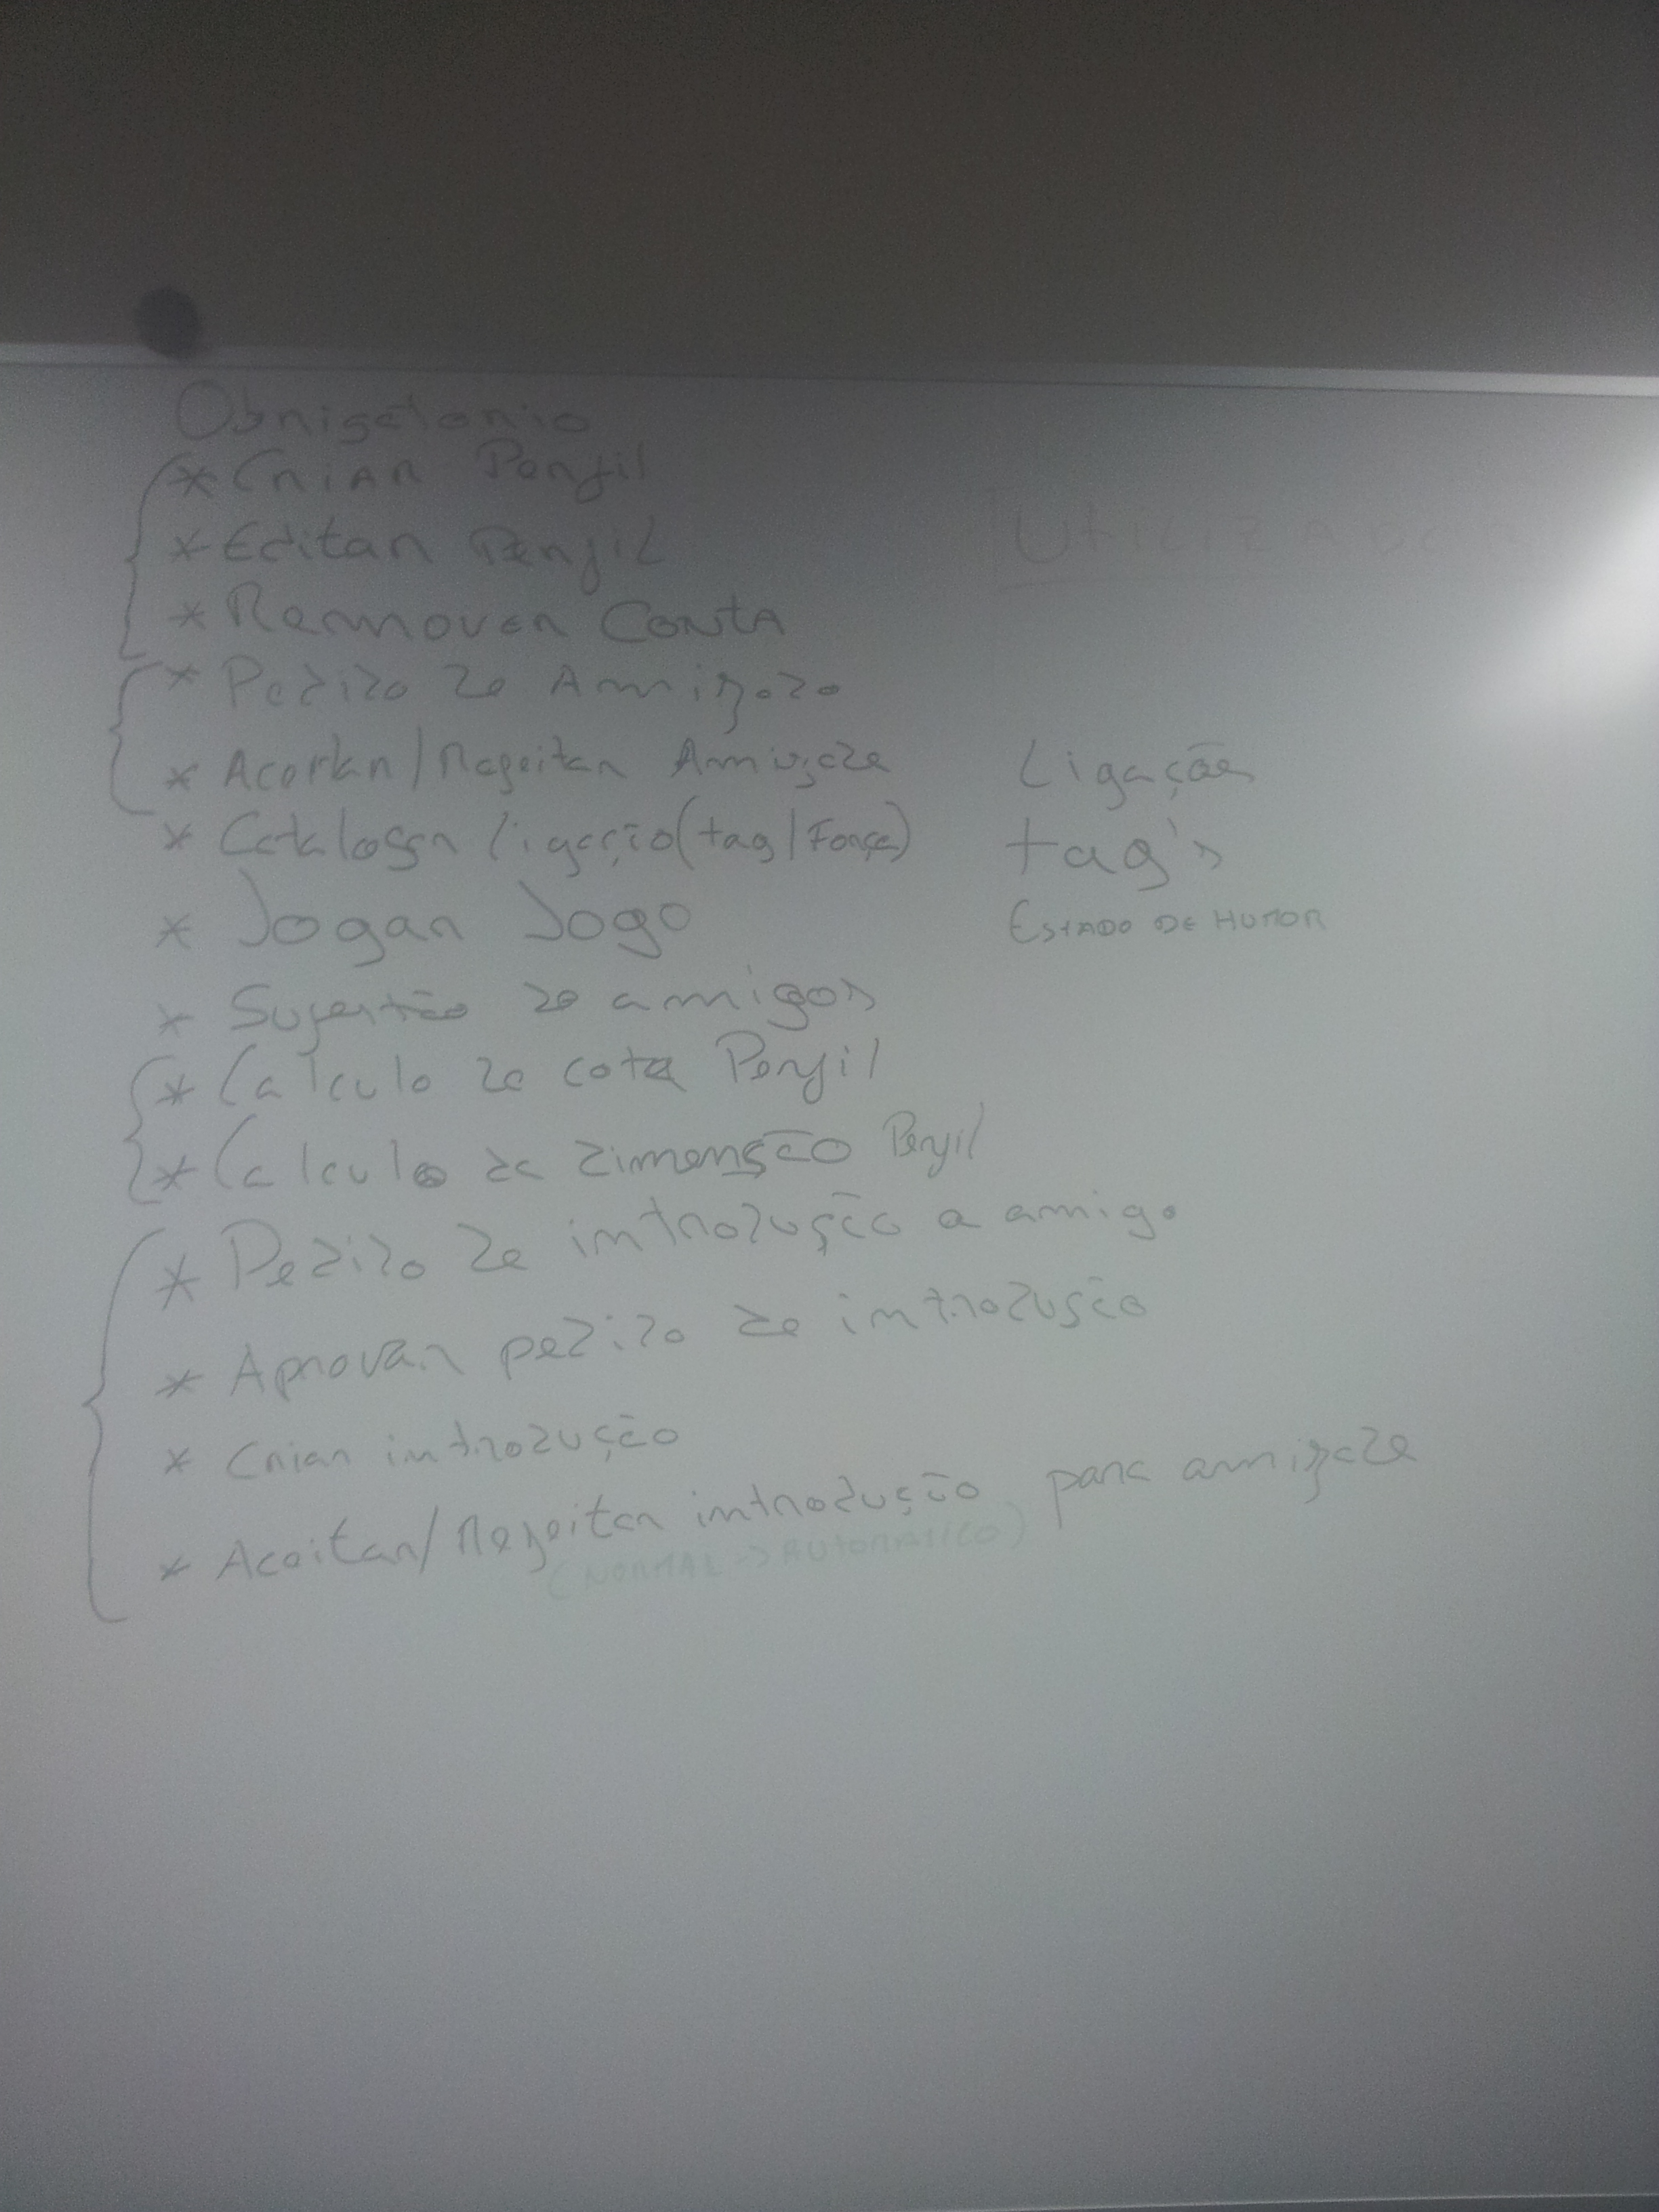 Obrigatorio
* Criar Perfil
* Editar Perfil
* Remover Conta
* Pedido de Amizade
* Aceitar/Rejeitar Amizade
* Catalogar ligação (tag/Força)
* Jogar Jogo
* Sugestão de amigos
* Calculo de cota Perfil
* Calculo de dimensão Perfil
* Pedido de introdução a amigo
* Aprovar pedido de introdução
* Criar introdução
* Aceitar/Rejeitar introdução para amizade
(NORMAL -> AUTOMATICO)
Ligação
tag's
ESTADO DE HUMOR